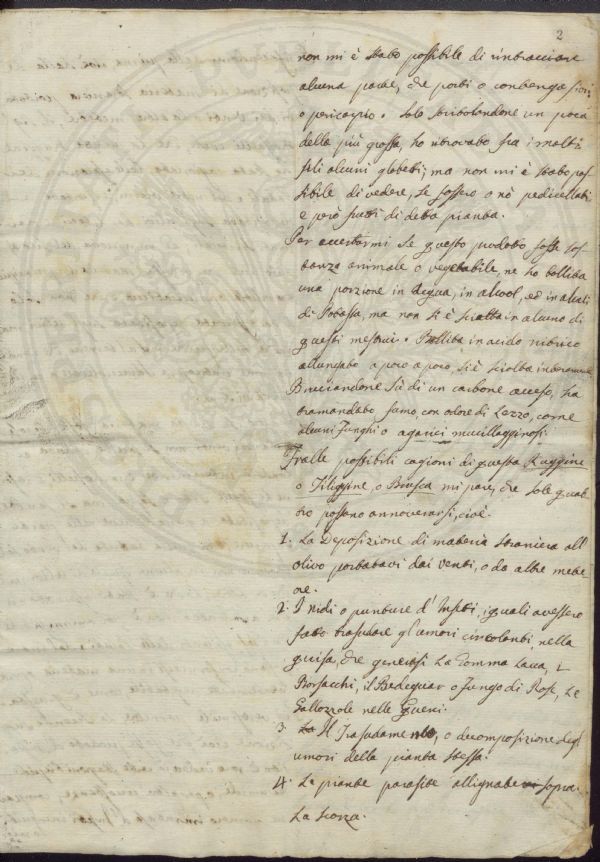 2
non mi è stato possibile di rintracciare
alcuna parte, che porti o contenga fiori,
o pericarpio. Solo stritolandone un poca
della più grossa, ho ritrovato fra i molti
peli alcuni globetti; ma non mi è stato pos
sibile di vedere, se fossero o nò pedicellati
e però frutti di detta pianta.
Per accertarmi se questo prodotto fosse sos
tanza animale o vegetabile, ne ho bollita
una porzione in acqua, in alcool, ed in alcali
di Potassa, ma non si è sciolta in alcuno di
questi mestrui. Bollita in acido nitrico
allungato a poco a poco, si è sciolta interamente
Bruciandone sù di un carbone acceso, ha
tramandato fumo, con odore di Lezzo, come
alcuni Funghi o agarici mucillagginosi.
Fralle possibili cagioni di questa Ruggine
o Filiggine, o Brusca mi pare, che sole quat
tro possano annoverarsi, cioè.
1. La Deposizione di materia straniera all'
olivo portatavi dai venti, o da altre mete
ore.
2. I nidi o punture d'Insetti, i quali avessero
fatto trasudare gl'umori circolanti, nella
guisa, che generasi la Gomma Lacca, i
Borsacchi, il Bedeguar o Fungo di Rose, le
Gallozzole nelle Querci.
3. Il Trasudamento, o decomposizione degl'
umori della pianta stessa.
4. Le piante parasite allignate sopra
La scorza.